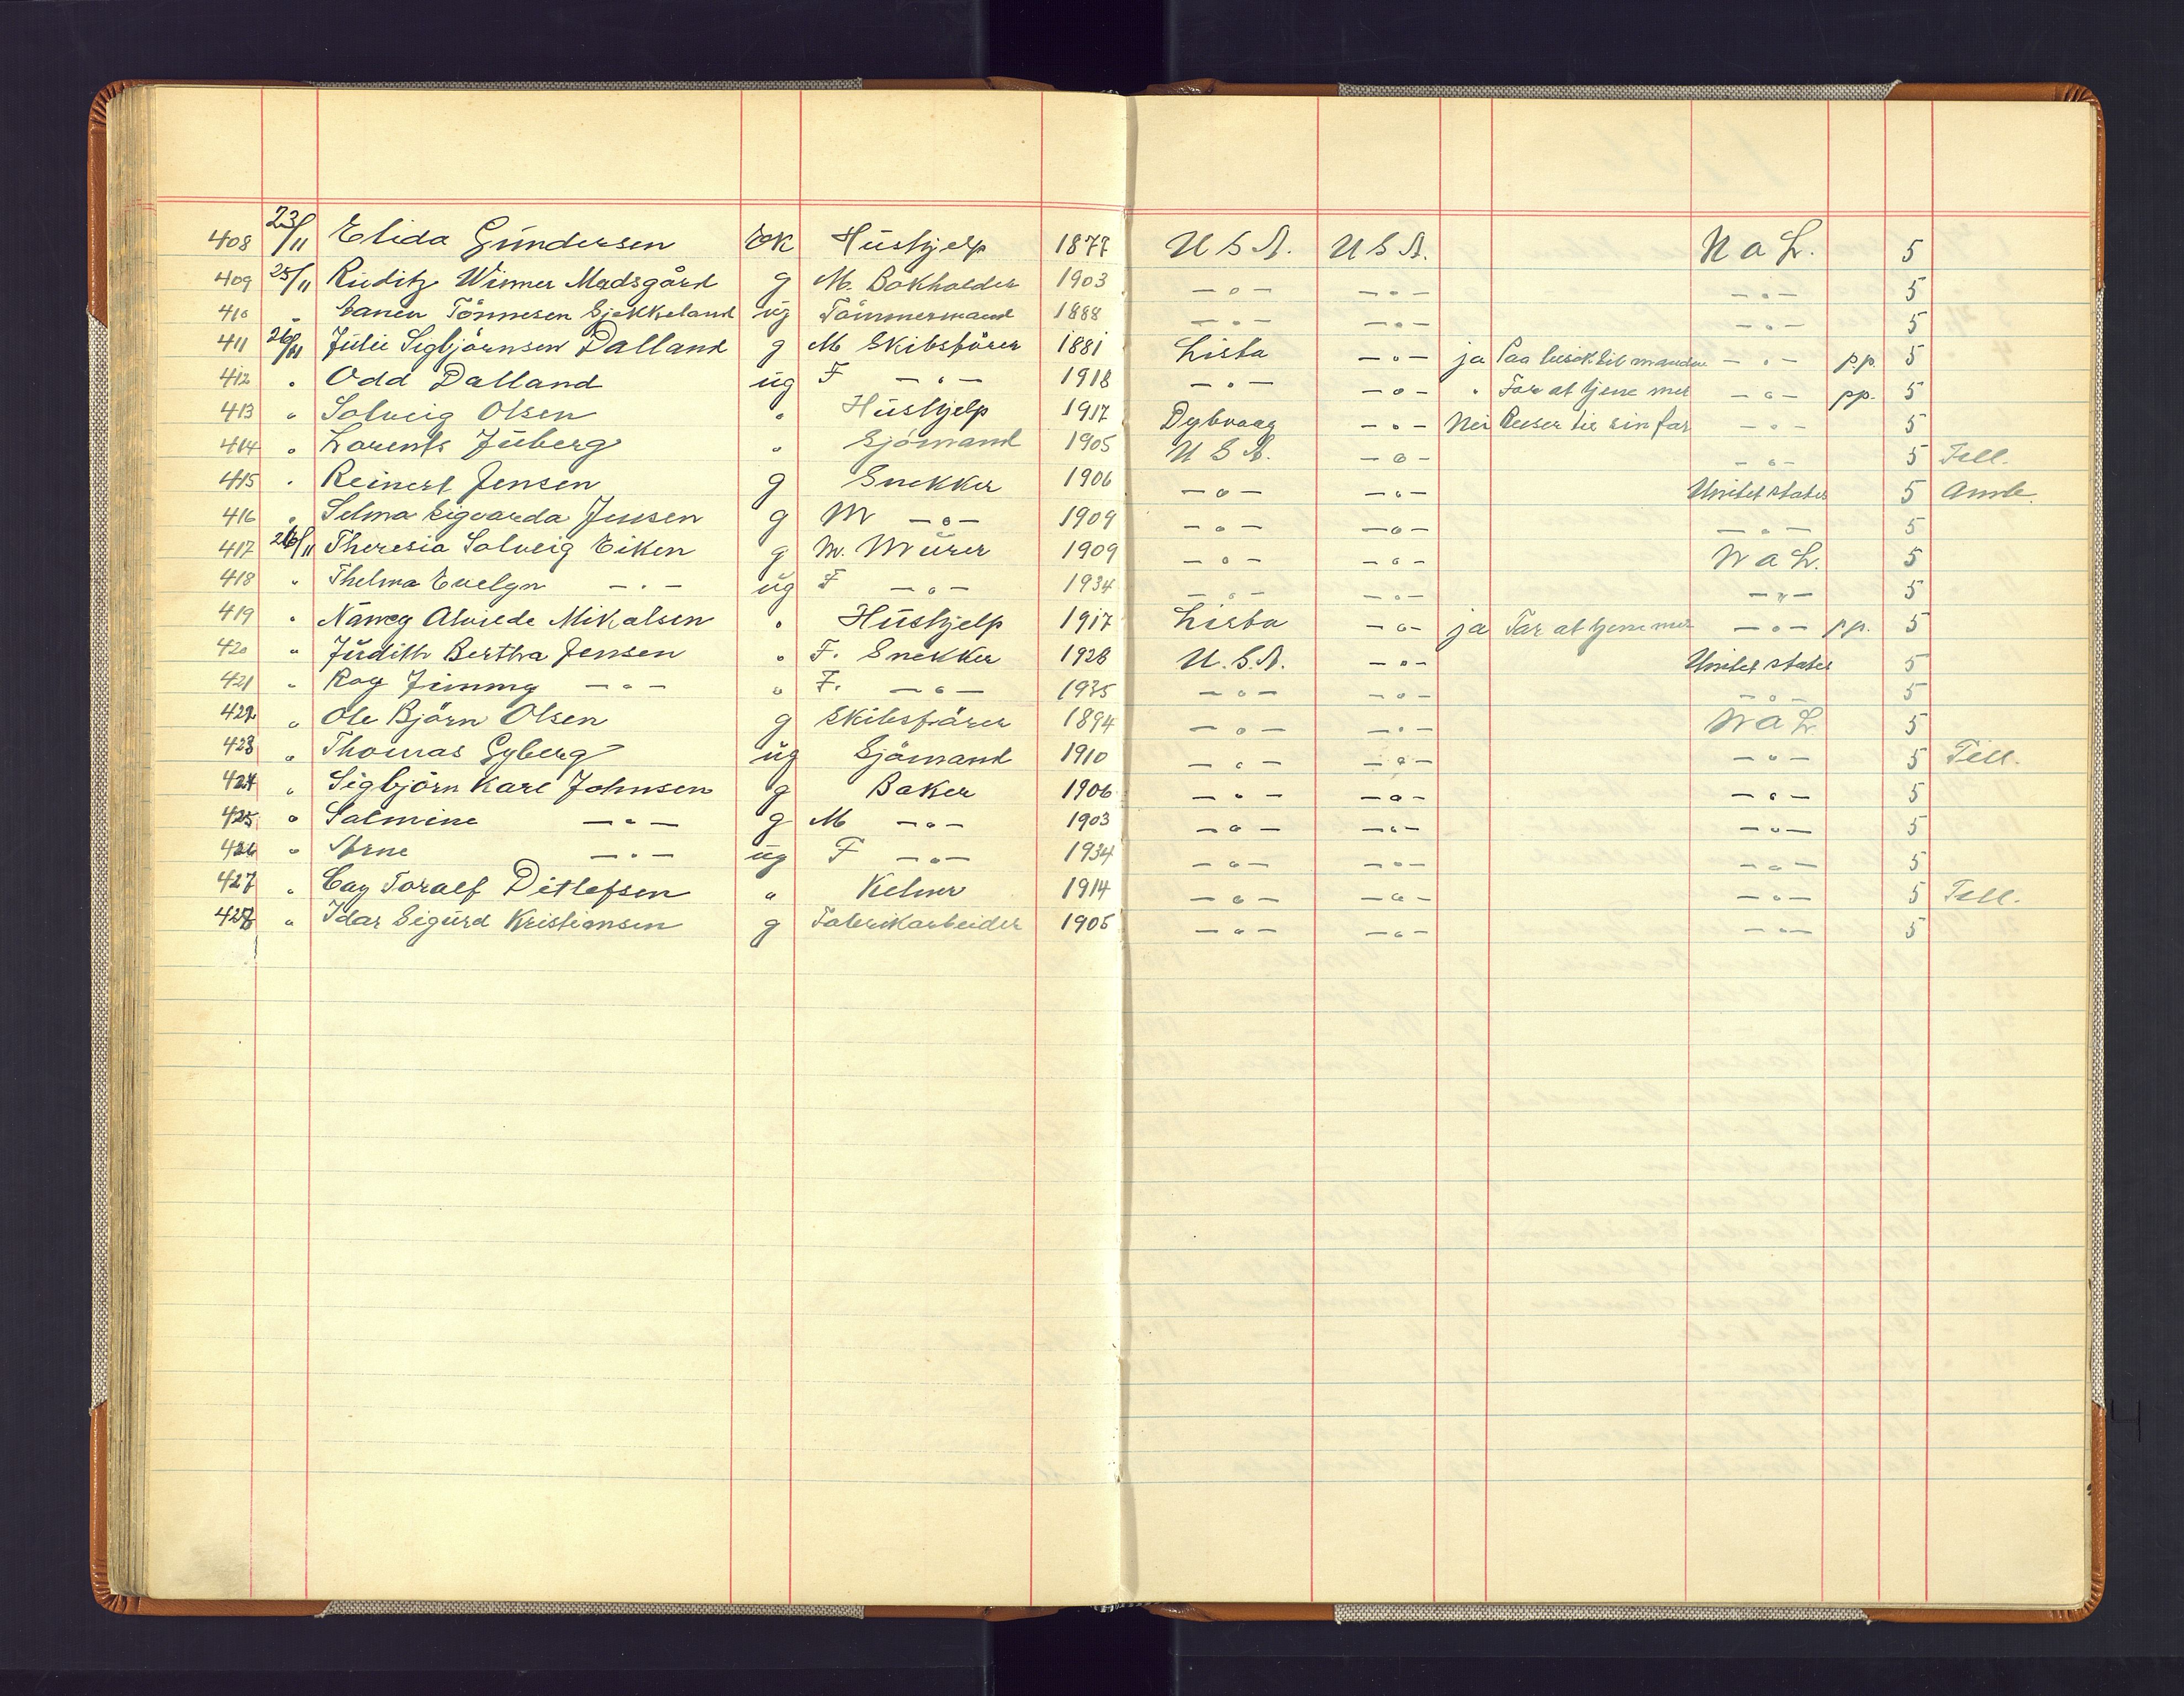 408 23/11 Elida Gundersen Ek Hushjelp 1877 U S A. U S A. N a L. 5
409 25/11 Ruditz Winner Madsgård g M. Bokholder 1903 -"- -"- -"- 5
410 " Tönnesen Gjekkeland ug Tömmermand 1888 -"- -"- -"- 5
411 26/11 Julie Sigbjörnsen Dalland g M Skibsförer 1881 Lista -"- ja Paa besök til manden -"- p.p. 5
412 " Odd Dalland ug F -"- 1918 -"- -"- " For at tjene mer -"- pp. 5
413 " Solveig Olsen " Hushjelp 1917 Dybvaag -"- Nei Reiser til sin far -"- 5
414 " Lorents Juberg " Sjömand 1905 U S A. -"- -"- 5 Fell.
415 " Reinert Jensen g Snekker 1906 -"- -"- Unitet states 5 Amb.
416 " Selma Sigvarda Jensen g M -"- 1909 -"- -"- -"- 5
417 26/11 Theresia Solveig Eiken g M. Murer 1909 -"- -"- N a L. 5
418 " Thelma Evelyn -"- ug F -"- 1934 -"- -"- -"- 5
419 " Alvilde Mikalsen " Hushjelp 1917 Lista -"- ja For at tjene mer -"- pp. 5
420 " Judith Bertha Jensen " F. Snekker 1928 U.S.A. -"- Unitet states 5
421 " Roy Jimmy -"- " F. -"- 1935 -"- -"- -"- 5
422 " Ole Björn Olsen g Skibsförer 1894 -"- -"- N a L 5
423 " Thomas Gyberg ug Sjömand 1910 -"- -"- -"- 5 Fell.
424 " Sigbjörn Karl Johnsen g Baker 1906 -"- -"- -"- 5
425 " Salmine -"- g M -"- 1903 -"- -"- -"- 5
426 " Arne -"- ug F -"- 1934 -"- -"- -"- 5
427 " Cay Toralf Ditlefsen " Kelner 1914 -"- -"- -"- 5 Fell.
428 " Idar Sigurd Kristiansen g Fabrikarbeider 1905 -"- -"- -"- 5